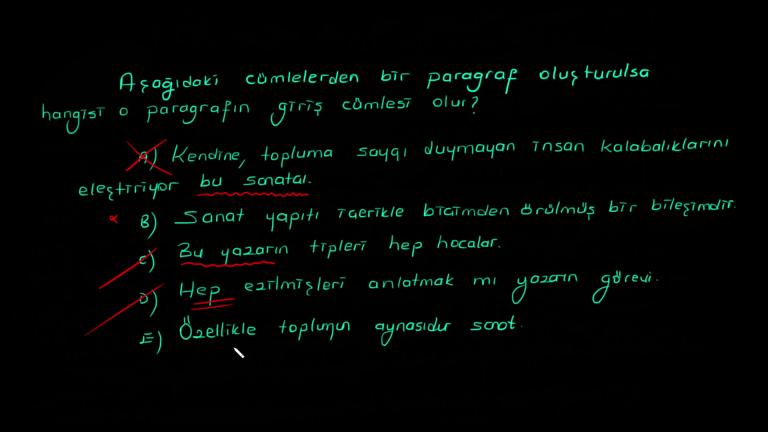 Aşağıdaki cümlelerden bir paragraf oluşturulsa
hangisi o paragrafın giriş cümlesi olur?
A) Kendine, topluma saygı duymayan insan kalabalıklarını
eleştiriyor bu sanatçı.
B) Sanat yapıtı içerikle biçimden örülmüş bir bileşimdir.
C) Bu yazarın tipleri hep hocalar.
D) Hep ezilmişleri anlatmak mı yazarın görevi.
E) Özellikle toplumun aynasıdır sanat.